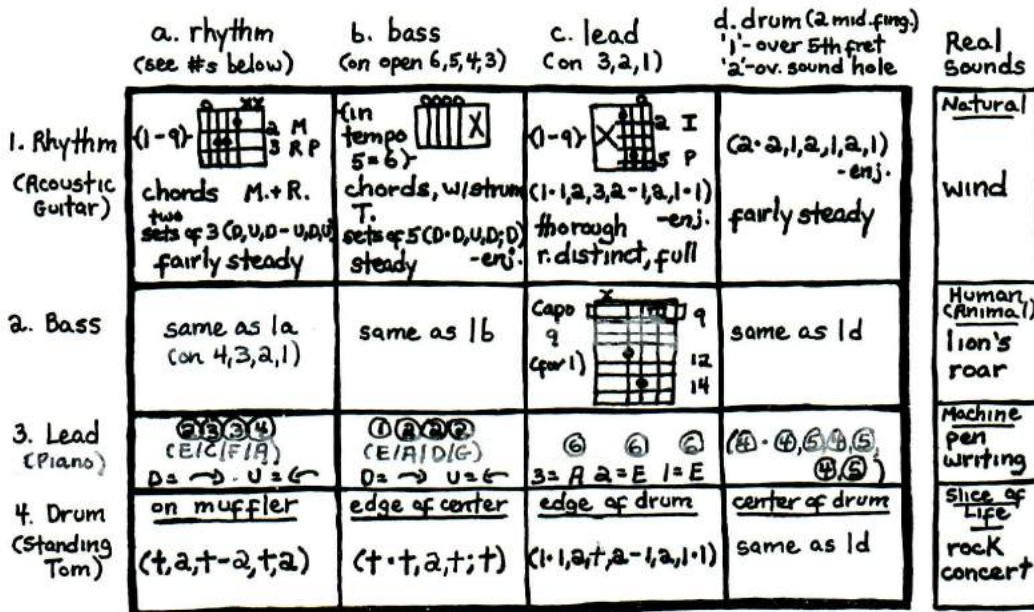 a. rhythm
(see #s below)
b. bass
(on open 6,5,4,3)
c. lead
(on 3,2,1)
d. drum (2 mid.fing.)
'1'-over 5th fret
'2'-ov. sound hole
Real
Sounds
1. Rhythm
(Acoustic
Guitar)
{1-9}
o xx
2 M
3 R P
chords M.+R.
two
sets of 3 (D,U,D-U,D,U)
fairly steady
{in
tempo
5=6}
oooo
X
chords, w/strum
T.
sets of 5 (D·D,U,D;D)
steady -enj.
{1-9}
o
X
2 I
5 P
(1·1,2,3,2-1,2,1·1)
-enj.
thorough
r.distinct, full
(2·2,1,2,1,2,1)
-enj.
fairly steady
Natural
wind
2. Bass
same as 1a
(on 4,3,2,1)
same as 1b
Capo
9
(for 1)
x
9
12
14
same as 1d
Human
(Animal)
lion's
roar
3. Lead
(Piano)
2 3 3 4
(E/C/F/A)
D= → · U= ←
1 2 2 2
(E/A/D/G)
D= → U= ←
6 6 6
3=A 2=E 1=E
(4 · 4,5,4,5,
4,5)
Machine
pen
writing
4. Drum
(Standing
Tom)
on muffler
(t,2,t-2,t,2)
edge of center
(t·t,2,t;t)
edge of drum
(1·1,2,t,2-1,2,1·1)
center of drum
same as 1d
Slice of
Life
rock
concert